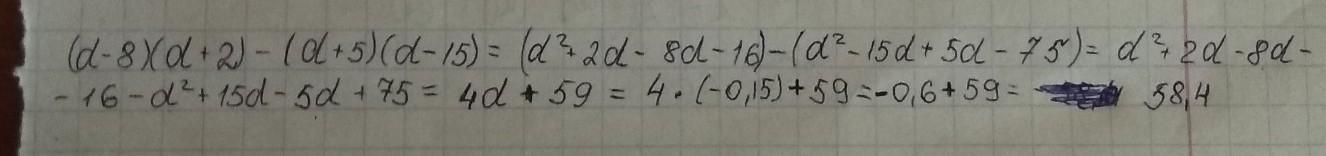 (d-8)(d+2)-(d+5)(d-15)=(d²+2d-8d-16)-(d²-15d+5d-75)=d²+2d-8d-
-16-d²+15d-5d+75=4d+59=4·(-0,15)+59=-0,6+59= 58,4